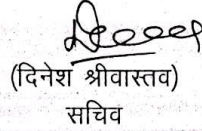 (दिनेश श्रीवास्तव)
सचिव